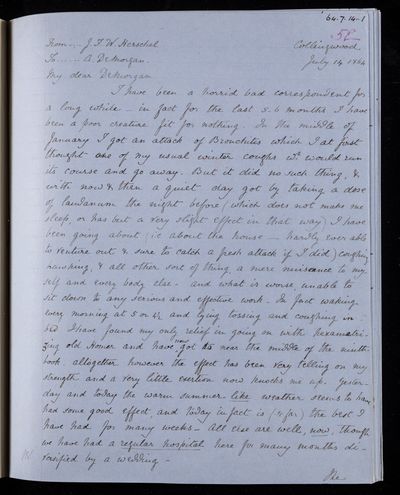 64.7.14-1
58
From .... J. F. W. Herschel Collingwood
To ..... A. DeMorgan. July 14 1864
My dear DeMorgan
I have been a horrid bad correspondent for
a long while - in fact for the last 5.6 months I have
been a poor creature fit for nothing. In the middle of
January I got an attack of Bronchitis which I at first
thought one of my usual winter coughs wh would run
its course and go away. But it did no such thing, &
with now & then a quiet day got by taking a dose
of laudanum the night before (which does not make me
sleep, or has but a very slight effect in that way) I have
been going about (i.e. about the house - hardly ever able
to venture out & sure to catch a fresh attack if I did) coughing
& all other sort of thing, a mere nuiscance to my
self and every body else - and what is worse, unable to
sit down to any serious and effective work - In fact waking
every morning at 5 or 4½ and lying tossing and coughing in
bed I have found my only relief in going on with hexametri-
zing old Homer and have now got to near the middle of the ninth
book. altogether however the effect has been very telling on my
strength and a very little exertion now knocks me up. Yester-
day and today the warm summer-like weather seems to have
had some good effect, and today in fact is (so far) the best I
have had for many weeks - All else are well, now, though
we have had a regular hospital here for many months di-
versified by a wedding -
The